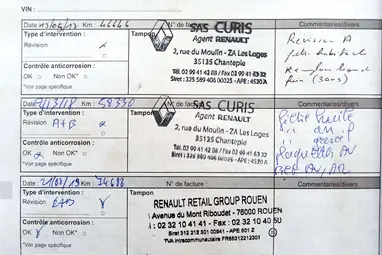 VIN :
Date 15/05/17 Km : 46646 N° de facture : Commentaires/divers
Type d'intervention :
Révision
Tampon
SAS CURIS
Agent RENAULT
2, rue du Moulin - ZA Les Loges
35135 Chantepie
Tél. 02 99 41 42 08 / Fax 02 99 41 63 32
Siret : 325 589 406 00025 - APE : 4520 A
Révision A
Contrôle anticorrosion :
OK Non OK*
*Voir page spécifique
frein (3ans)
Date Km : 58330 N° de facture : Commentaires/divers
Type d'intervention :
Révision A+B
Tampon
SAS CURIS
Agent RENAULT
2, rue du Moulin - ZA Les Loges
35135 Chantepie
Tél. 02 99 41 42 08 / Fax 02 99 41 63 32
Siret : 325 589 406 00025 - APE : 4520 A
Contrôle anticorrosion :
OK Non OK*
*Voir page spécifique
Filtre huile
Plaquettes AV
Date 21/02/19 Km : 74688 N° de facture : Commentaires/divers
Type d'intervention :
Révision
Tampon
RENAULT RETAIL GROUP ROUEN
Avenue du Mont Riboudet - 76000 ROUEN
Tél : 02 32 10 41 41 - Fax : 02 32 10 40 50
Contrôle anticorrosion :
OK Non OK*
*Voir page spécifique